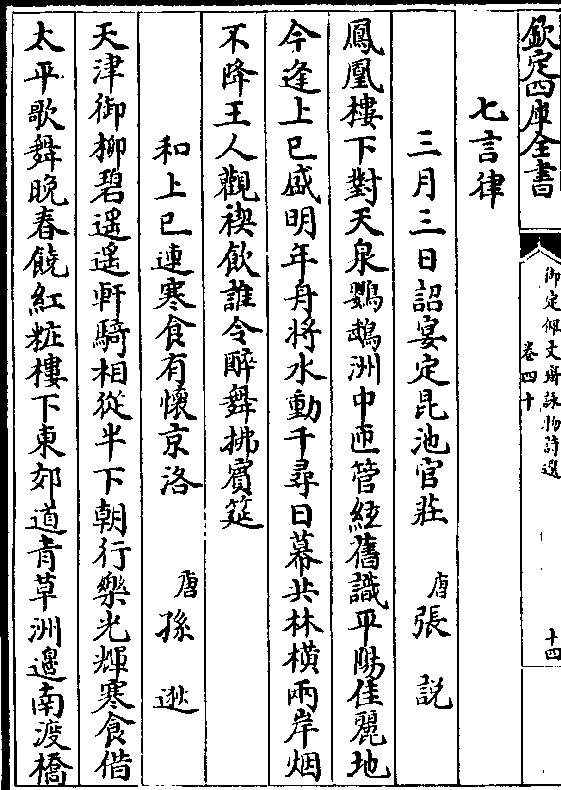 欽定四庫全書
御定佩文齋詠物詩選
卷四十
十四
七言律
三月三日詔宴定昆池官莊 唐 張說
鳳凰樓下對天泉鸚鵡洲中匝管絃舊識平陽佳麗地
今逢上巳盛明年舟將水動千尋日幕共林橫兩岸烟
不降王人觀禊飲誰令醉舞拂賓筵
和上巳連寒食有懷京洛 唐 孫逖
天津御柳碧遥遥軒騎相從半下朝行樂光輝寒食借
太平歌舞晚春饒紅粧樓下東郊道青草洲邊南渡橋